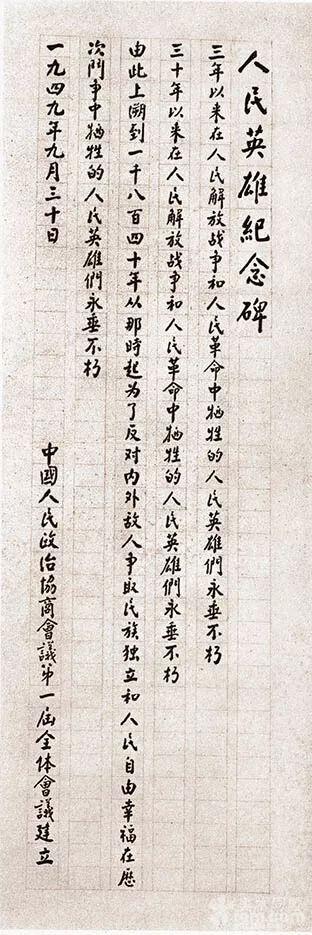 人民英雄紀念碑
三年以来在人民解放战争和人民革命中牺牲的人民英雄們永垂不朽
三十年以来在人民解放战争和人民革命中牺牲的人民英雄們永垂不朽
由此上溯到一千八百四十年从那時起为了反对内外敌人争取民族独立和人民自由幸福在歷
次鬥争中牺牲的人民英雄們永垂不朽
一九四九年九月三十日 中國人民政治協商會議第一屆全体會議建立